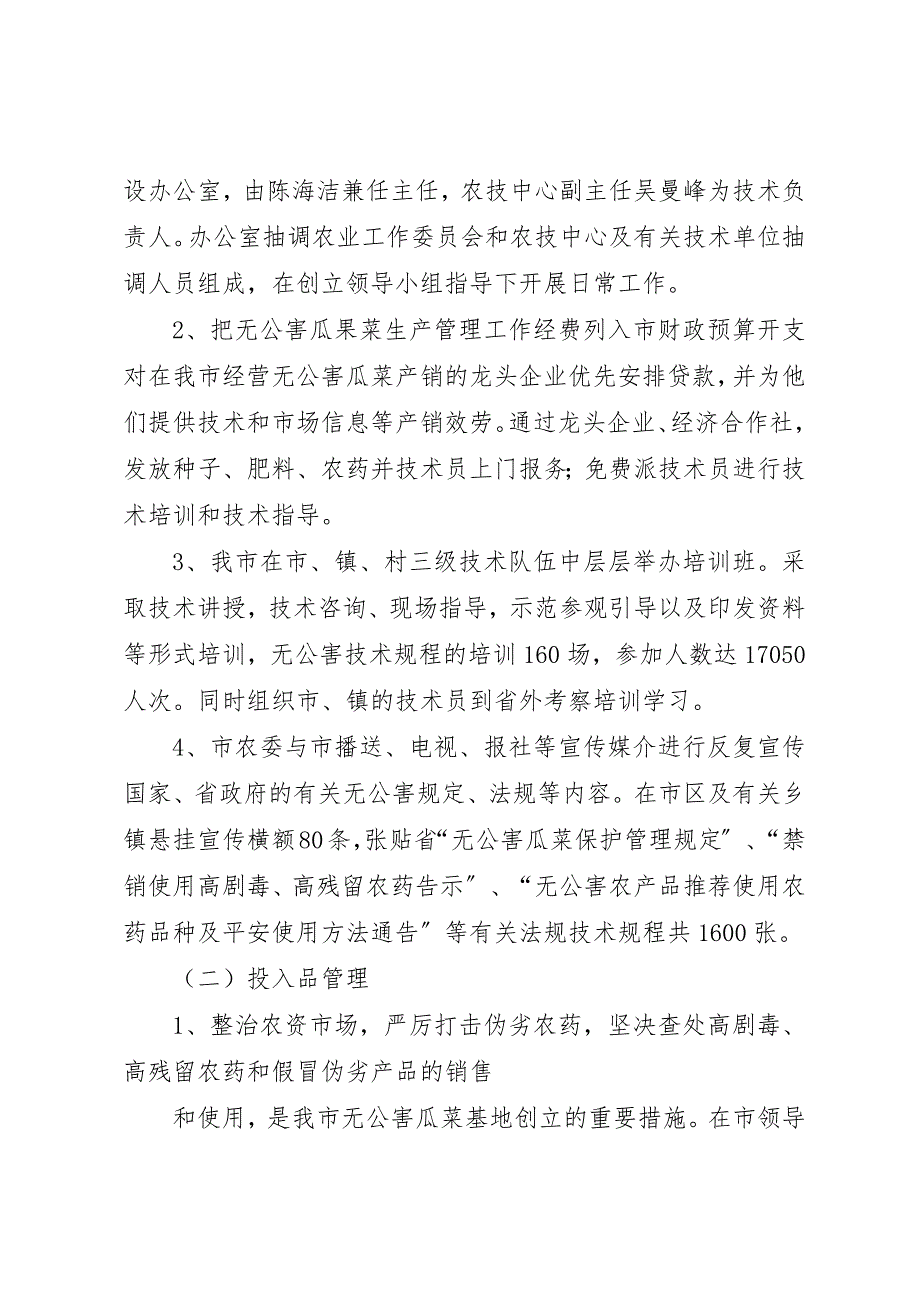 设办公室，由陈海洁兼任主任，农技中心副主任吴曼峰为技术负
责人。办公室抽调农业工作委员会和农技中心及有关技术单位抽
调人员组成，在创立领导小组指导下开展日常工作。
2、把无公害瓜果菜生产管理工作经费列入市财政预算开支
对在我市经营无公害瓜菜产销的龙头企业优先安排贷款，并为他
们提供技术和市场信息等产销效劳。通过龙头企业、经济合作社，
发放种子、肥料、农药并技术员上门报务；免费派技术员进行技
术培训和技术指导。
3、我市在市、镇、村三级技术队伍中层层举办培训班。采
取技术讲授，技术咨询、现场指导，示范参观引导以及印发资料
等形式培训，无公害技术规程的培训160场，参加人数达17050
人次。同时组织市、镇的技术员到省外考察培训学习。
4、市农委与市播送、电视、报社等宣传媒介进行反复宣传
国家、省政府的有关无公害规定、法规等内容。在市区及有关乡
镇悬挂宣传横额80条，张贴省“无公害瓜菜保护管理规定〞、“禁
销使用高剧毒、高残留农药告示〞、“无公害农产品推荐使用农
药品种及平安使用方法通告〞等有关法规技术规程共1600张。
（二）投入品管理
1、整治农资市场，严厉打击伪劣农药，坚决查处高剧毒、
高残留农药和假冒伪劣产品的销售
和使用，是我市无公害瓜菜基地创立的重要措施。在市领导